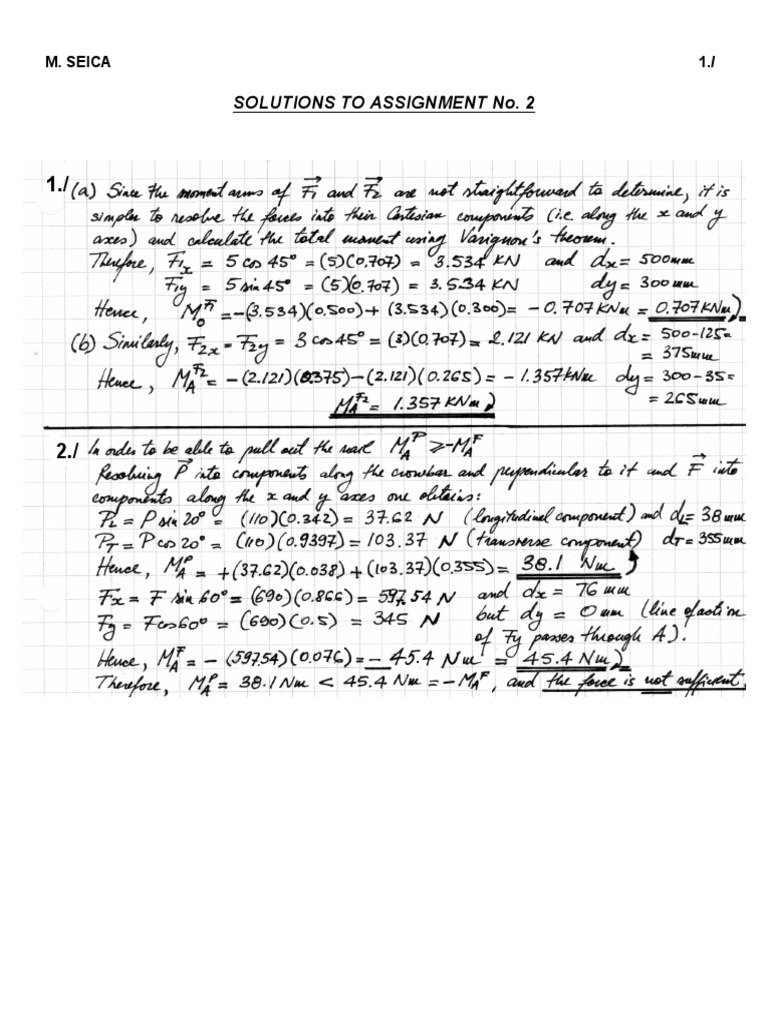 M. SEICA 1./
SOLUTIONS TO ASSIGNMENT No. 2
1./ (a) Since the moment arms of F⃗1 and F⃗2 are not straightforward to determine, it is
simpler to resolve the forces into their Cartesian components (i.e. along the x and y
axes) and calculate the total moment using Varignon's theorem.
Therefore, F1x = 5 cos 45° = (5)(0.707) = 3.534 KN and dx = 500mm
F1y = 5 sin 45° = (5)(0.707) = 3.534 KN dy = 300mm
Hence, M_O^F1 = -(3.534)(0.500)+(3.534)(0.300)= -0.707KNm = 0.707KNm)
(b) Similarly, F2x = F2y = 3 cos 45° = (3)(0.707) = 2.121 KN and dx = 500-125=
= 375mm
Hence, M_A^F2 = -(2.121)(0.375)-(2.121)(0.265) = -1.357KNm dy = 300-35=
= 265mm
M_A^F2 = 1.357KNm)
2./ In order to be able to pull out the nail M_A^P ≥ -M_A^F
Resolving P⃗ into components along the crowbar and perpendicular to it and F⃗ into
components along the x and y axes one obtains:
PL = P sin 20° = (110)(0.342) = 37.62 N (longitudinal component) and dL = 38mm
PT = P cos 20° = (110)(0.9397) = 103.37 N (transverse component) dT = 355mm
Hence, M_A^P = +(37.62)(0.038)+(103.37)(0.355)= 38.1 Nm)
Fx = F sin 60° = (690)(0.866) = 597.54 N and dx = 76 mm
Fy = F cos 60° = (690)(0.5) = 345 N but dy = 0 mm (line of action
of Fy passes through A).
Hence, M_A^F = -(597.54)(0.076) = -45.4 Nm = 45.4 Nm)
Therefore, M_A^P = 38.1 Nm < 45.4 Nm = -M_A^F, and the force is not sufficient.